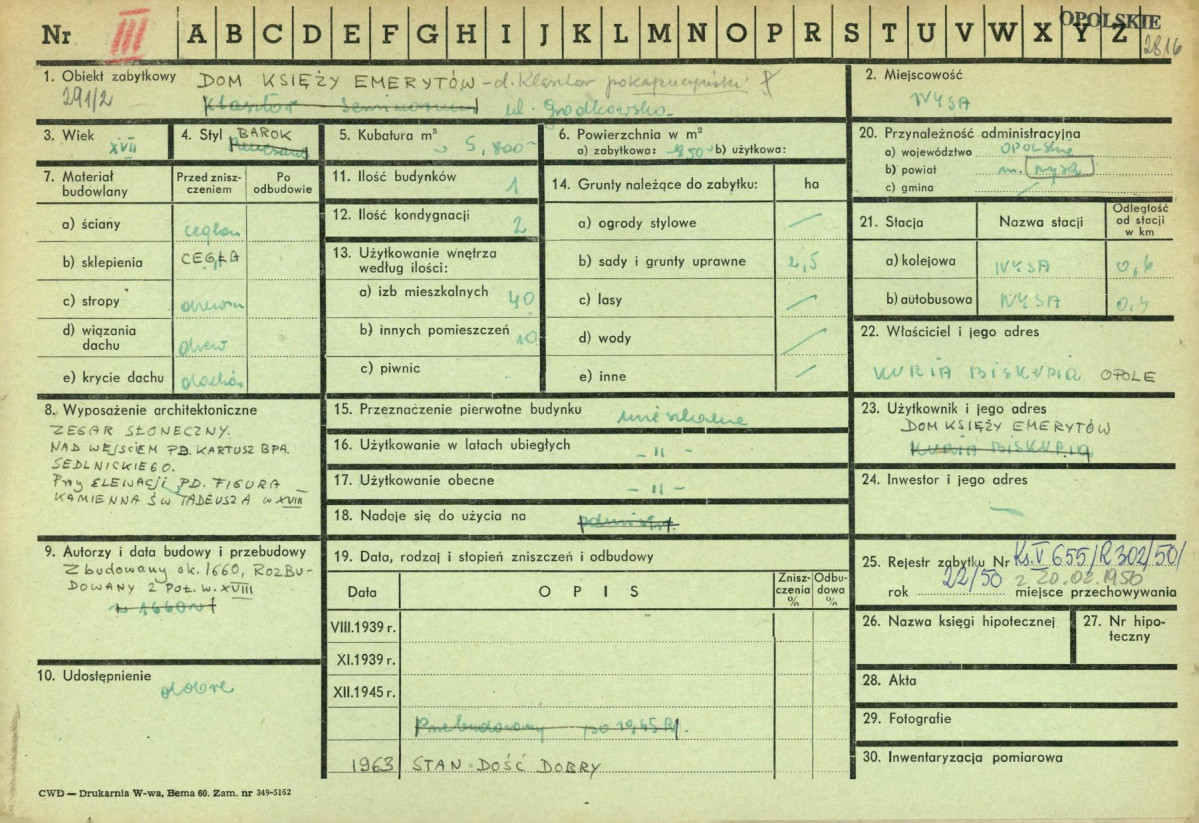 OPOLSKIE
Nr III A B C D E F G H I J K L M N O P R S T U V W X Y Z
2816
1. Obiekt zabytkowy DOM KSIĘŻY EMERYTÓW - d. Klasztor pokapucyński
291/2 Klasztor ul. Grodkowska
2. Miejscowość
NYSA
3. Wiek XVII
4. Styl BAROK
5. Kubatura m³ 5,800
6. Powierzchnia w m²
a) zabytkowa: 850 b) użytkowa:
20. Przynależność administracyjna
a) województwo OPOLSKIE
b) powiat m. Nysa
c) gmina
7. Materiał budowlany
Przed zniszczeniem
Po odbudowie
a) ściany
b) sklepienia CEGŁA
c) stropy
d) wiązania dachu drew
e) krycie dachu
11. Ilość budynków 1
12. Ilość kondygnacji 2
13. Użytkowanie wnętrza
według ilości:
a) izb mieszkalnych 40
b) innych pomieszczeń 10
c) piwnic
14. Grunty należące do zabytku: ha
a) ogrody stylowe /
b) sady i grunty uprawne 2,5
c) lasy /
d) wody /
e) inne /
21. Stacja
Nazwa stacji
Odległość
od stacji
w km
a) kolejowa NYSA 0,6
b) autobusowa NYSA 0,4
22. Właściciel i jego adres
KURIA BISKUPIA OPOLE
8. Wyposażenie architektoniczne
ZEGAR SŁONECZNY.
NAD WEJŚCIEM PD. KARTUSZ BPA.
SEDLNICKIEGO.
Przy ELEWACJI PD. FIGURA
KAMIENNA ŚW TADEUSZA w XVIII
15. Przeznaczenie pierwotne budynku mieszkalne
16. Użytkowanie w latach ubiegłych - " -
17. Użytkowanie obecne - " -
18. Nadaje się do użycia na
23. Użytkownik i jego adres
DOM KSIĘŻY EMERYTÓW
KURIA BISKUPIA
24. Inwestor i jego adres
—
9. Autorzy i data budowy i przebudowy
Zbudowany ok. 1660, ROZBU-
DOWANY 2 POŁ. w. XVIII
w 1660 r
19. Data, rodzaj i stopień zniszczeń i odbudowy
Data
OPIS
Zniszczenia %
Odbudowa %
VIII.1939 r.
XI.1939 r.
XII.1945 r.
Przebudowany po 1945 R.
1963 STAN DOŚĆ DOBRY
25. Rejestr zabytku Nr Ks. V 655/R 302/50/
rok 22/50 z 20.02.1950
miejsce przechowywania
26. Nazwa księgi hipotecznej
27. Nr hipo-
teczny
28. Akta
29. Fotografie
30. Inwentaryzacja pomiarowa
10. Udostępnienie
dobre
CWD — Drukarnia W-wa, Bema 60. Zam. nr 349-5162